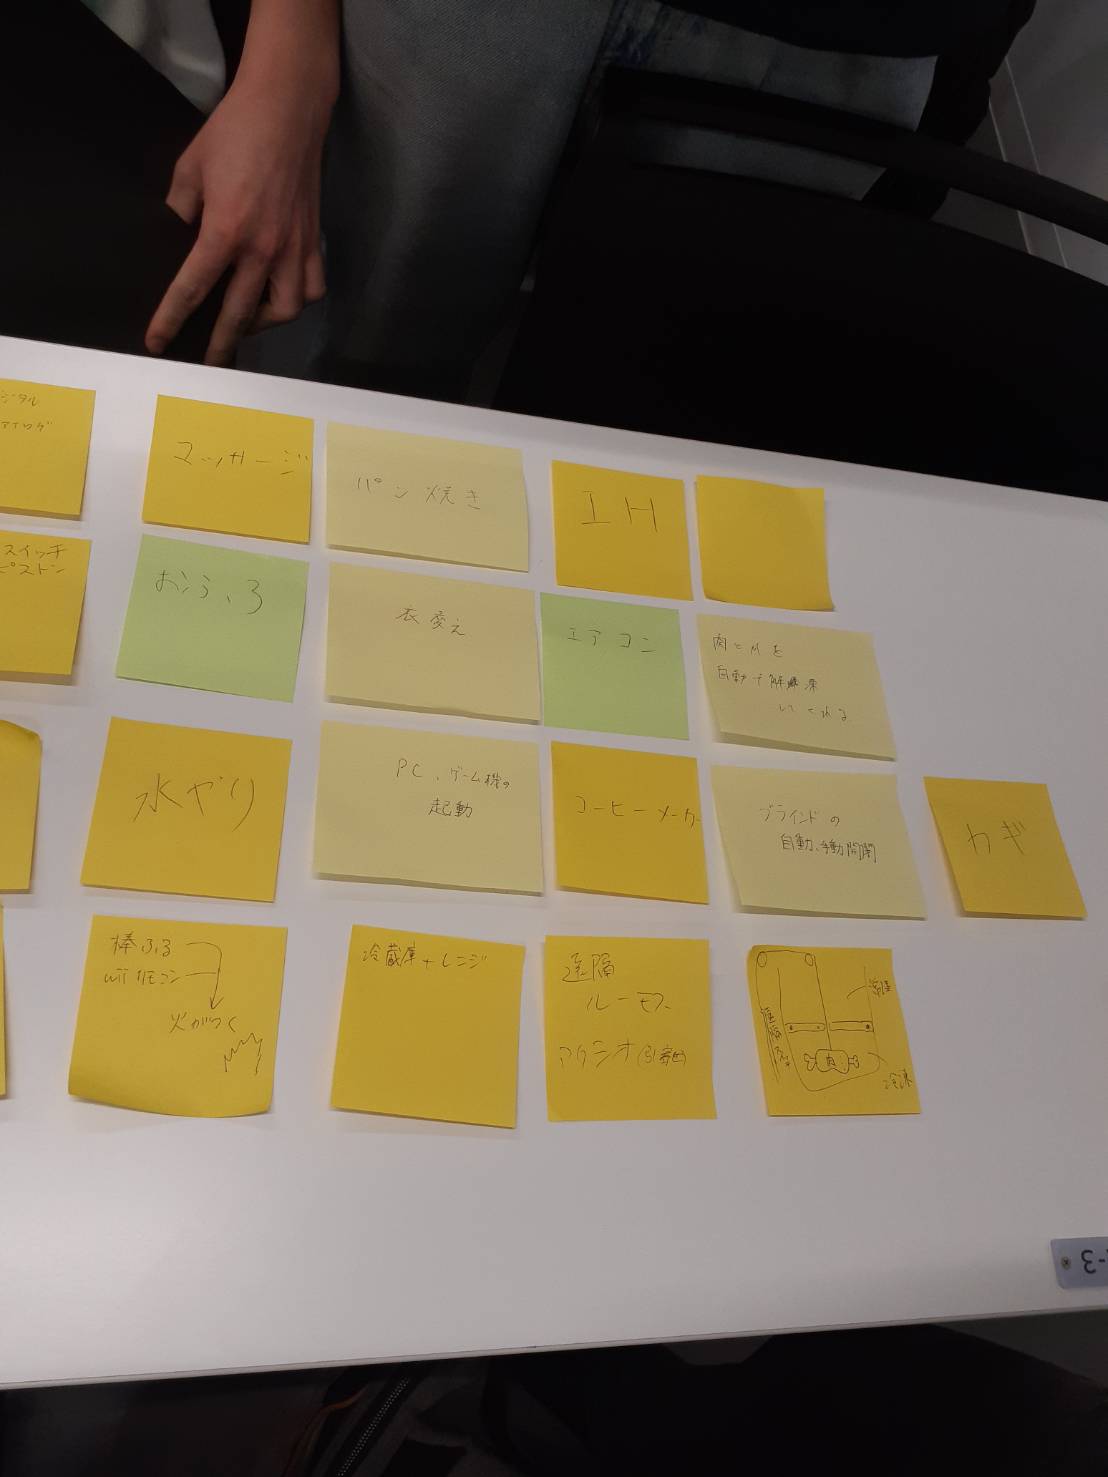 ジタル
アナログ
マッサージ
パン焼き
IH
スイッチ
ピストン
おふろ
衣変え
エアコン
自動で解凍
してくれる
水やり
PC、ゲーム機の
起動
コーヒーメーカー
ブラインドの
自動、手動開閉
カギ
棒ふる
wii リモコン
火がつく
冷蔵庫+レンジ
遠隔
ルーモス
アクシオ(引寄せ)
肉
冷凍
-3